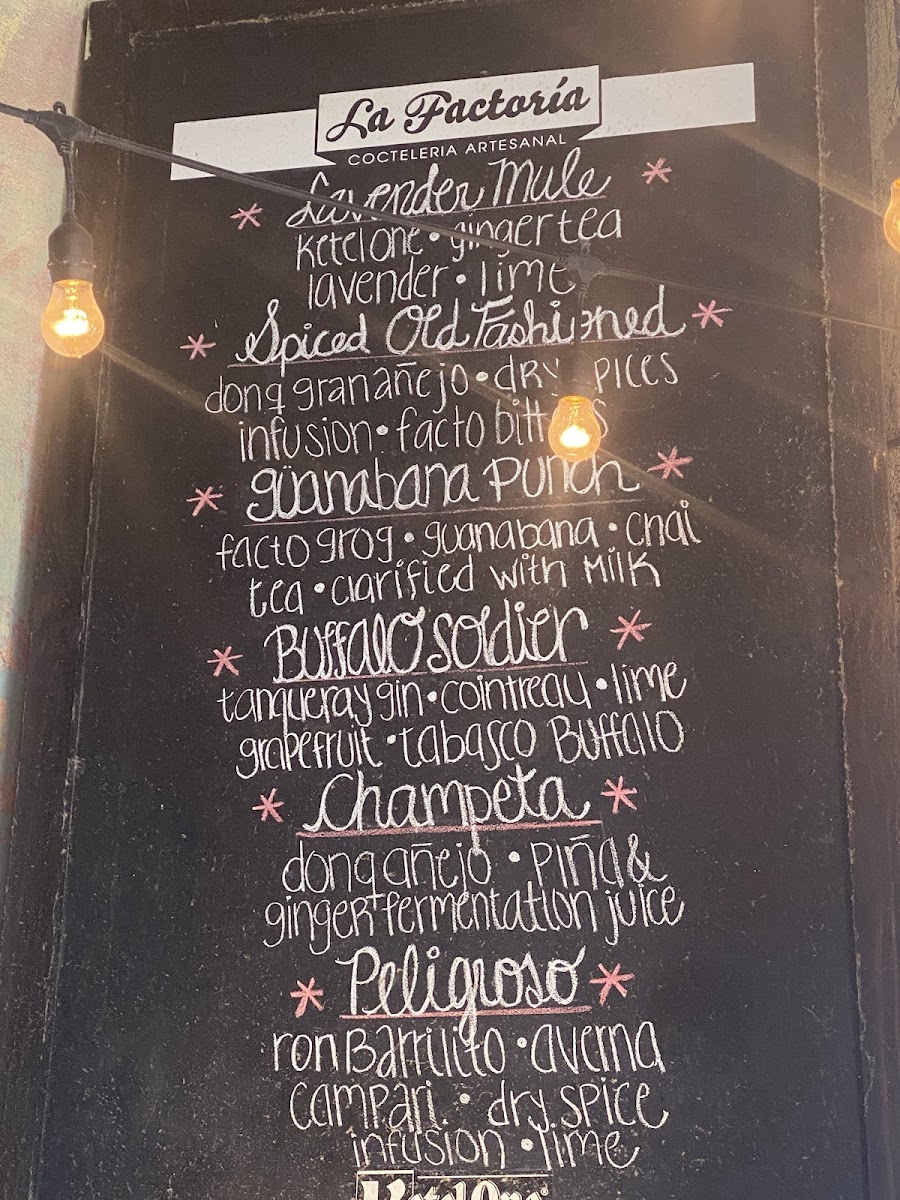 La Factoría
COCTELERIA ARTESANAL
Lavender Mule
Ketel one • ginger tea
lavender • lime
Spiced Old Fashioned
donq gran añejo • dry spices
infusion • facto bitters
guanabana punch
facto grog • guanabana • chai
tea • clarified with Milk
Buffalo soldier
tanqueray gin • cointreau • lime
grapefruit • tabasco Buffalo
Champeta
donq añejo • piña &
ginger fermentation juice
Peligroso
ron Barrilito • averna
campari • dry spice
infusion • lime
Ketel One